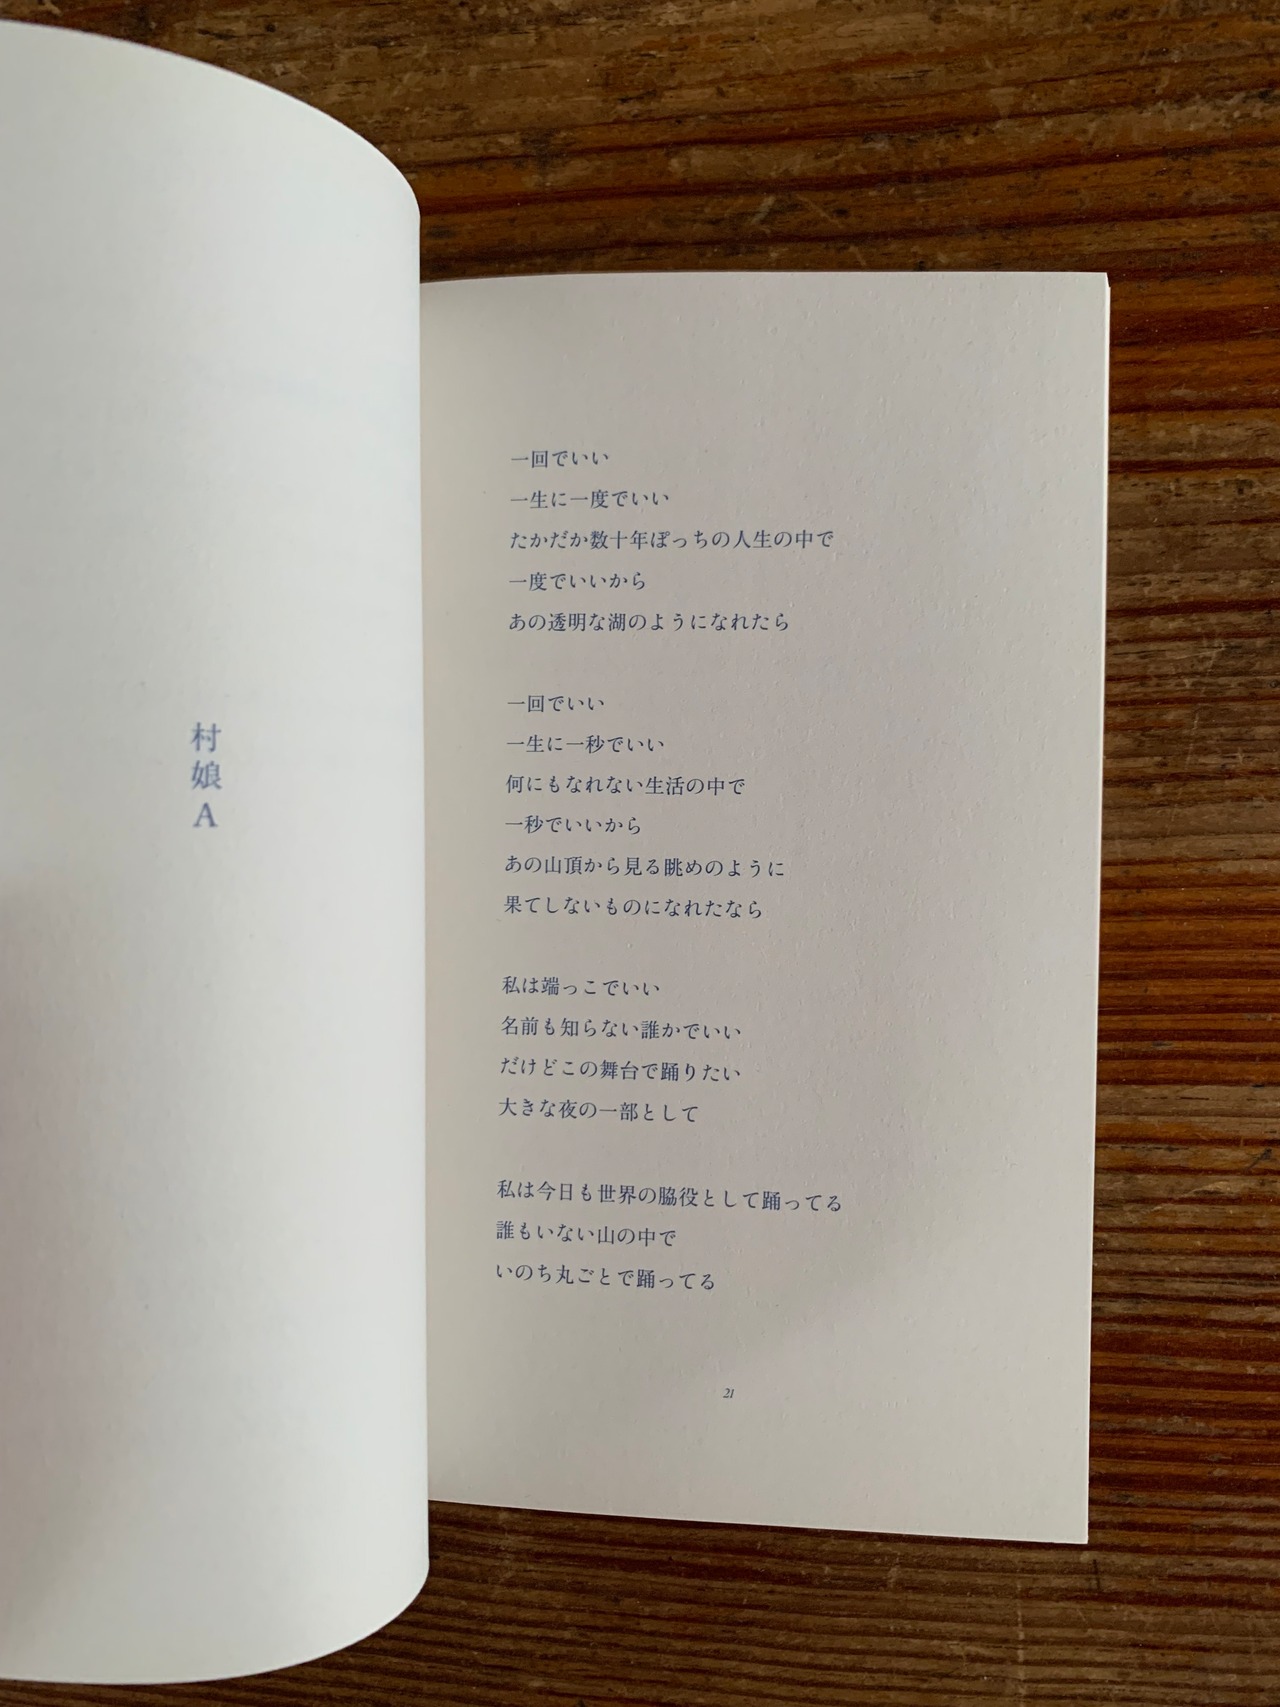 村娘A
一回でいい
一生に一度でいい
たかだか数十年ぽっちの人生の中で
一度でいいから
あの透明な湖のようになれたら
一回でいい
一生に一秒でいい
何にもなれない生活の中で
一秒でいいから
あの山頂から見る眺めのように
果てしないものになれたなら
私は端っこでいい
名前も知らない誰かでいい
だけどこの舞台で踊りたい
大きな夜の一部として
私は今日も世界の脇役として踊ってる
誰もいない山の中で
いのち丸ごとで踊ってる
21